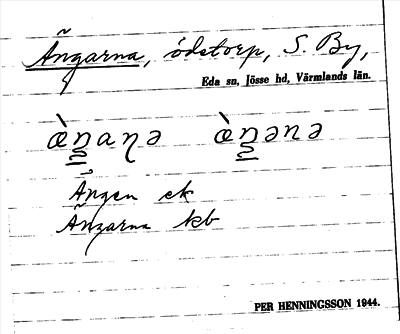 Ängarna, ödetorp, S. By,
Eda sn, Jösse hd, Värmlands län.
Ängen ek
Ängarna kb
PER HENNINGSSON 1944.